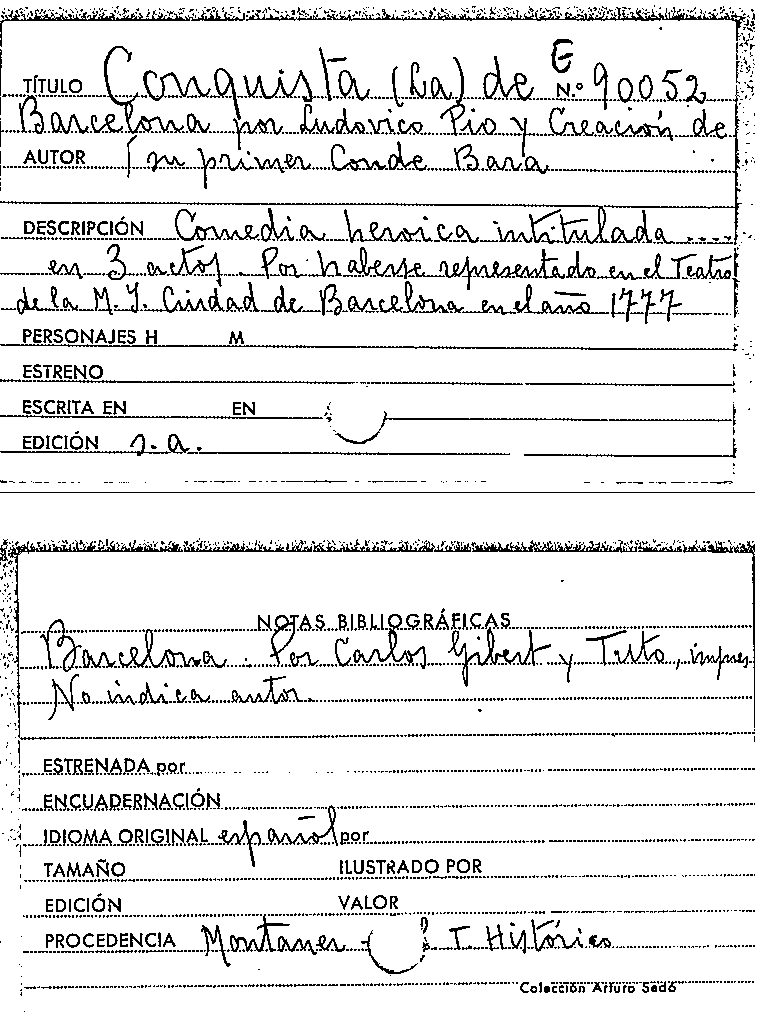 E
TÍTULO Conquista (La) de N.º 90052
Barcelona por Ludovico Pio y Creación de
AUTOR su primer Conde Bara
DESCRIPCIÓN Comedia heroica intitulada ....
en 3 actos. Por haberse representado en el Teatro
de la M. I. Ciudad de Barcelona en el año 1777
PERSONAJES H M
ESTRENO
ESCRITA EN EN
EDICIÓN s.a.
NOTAS BIBLIOGRÁFICAS
Barcelona. Por Carlos Gibert y Tuto, impres.
No indica autor.
ESTRENADA por
ENCUADERNACIÓN
IDIOMA ORIGINAL español por
TAMAÑO ILUSTRADO POR
EDICIÓN VALOR
PROCEDENCIA Montaner - T. Histórico
Colección Arturo Sedó